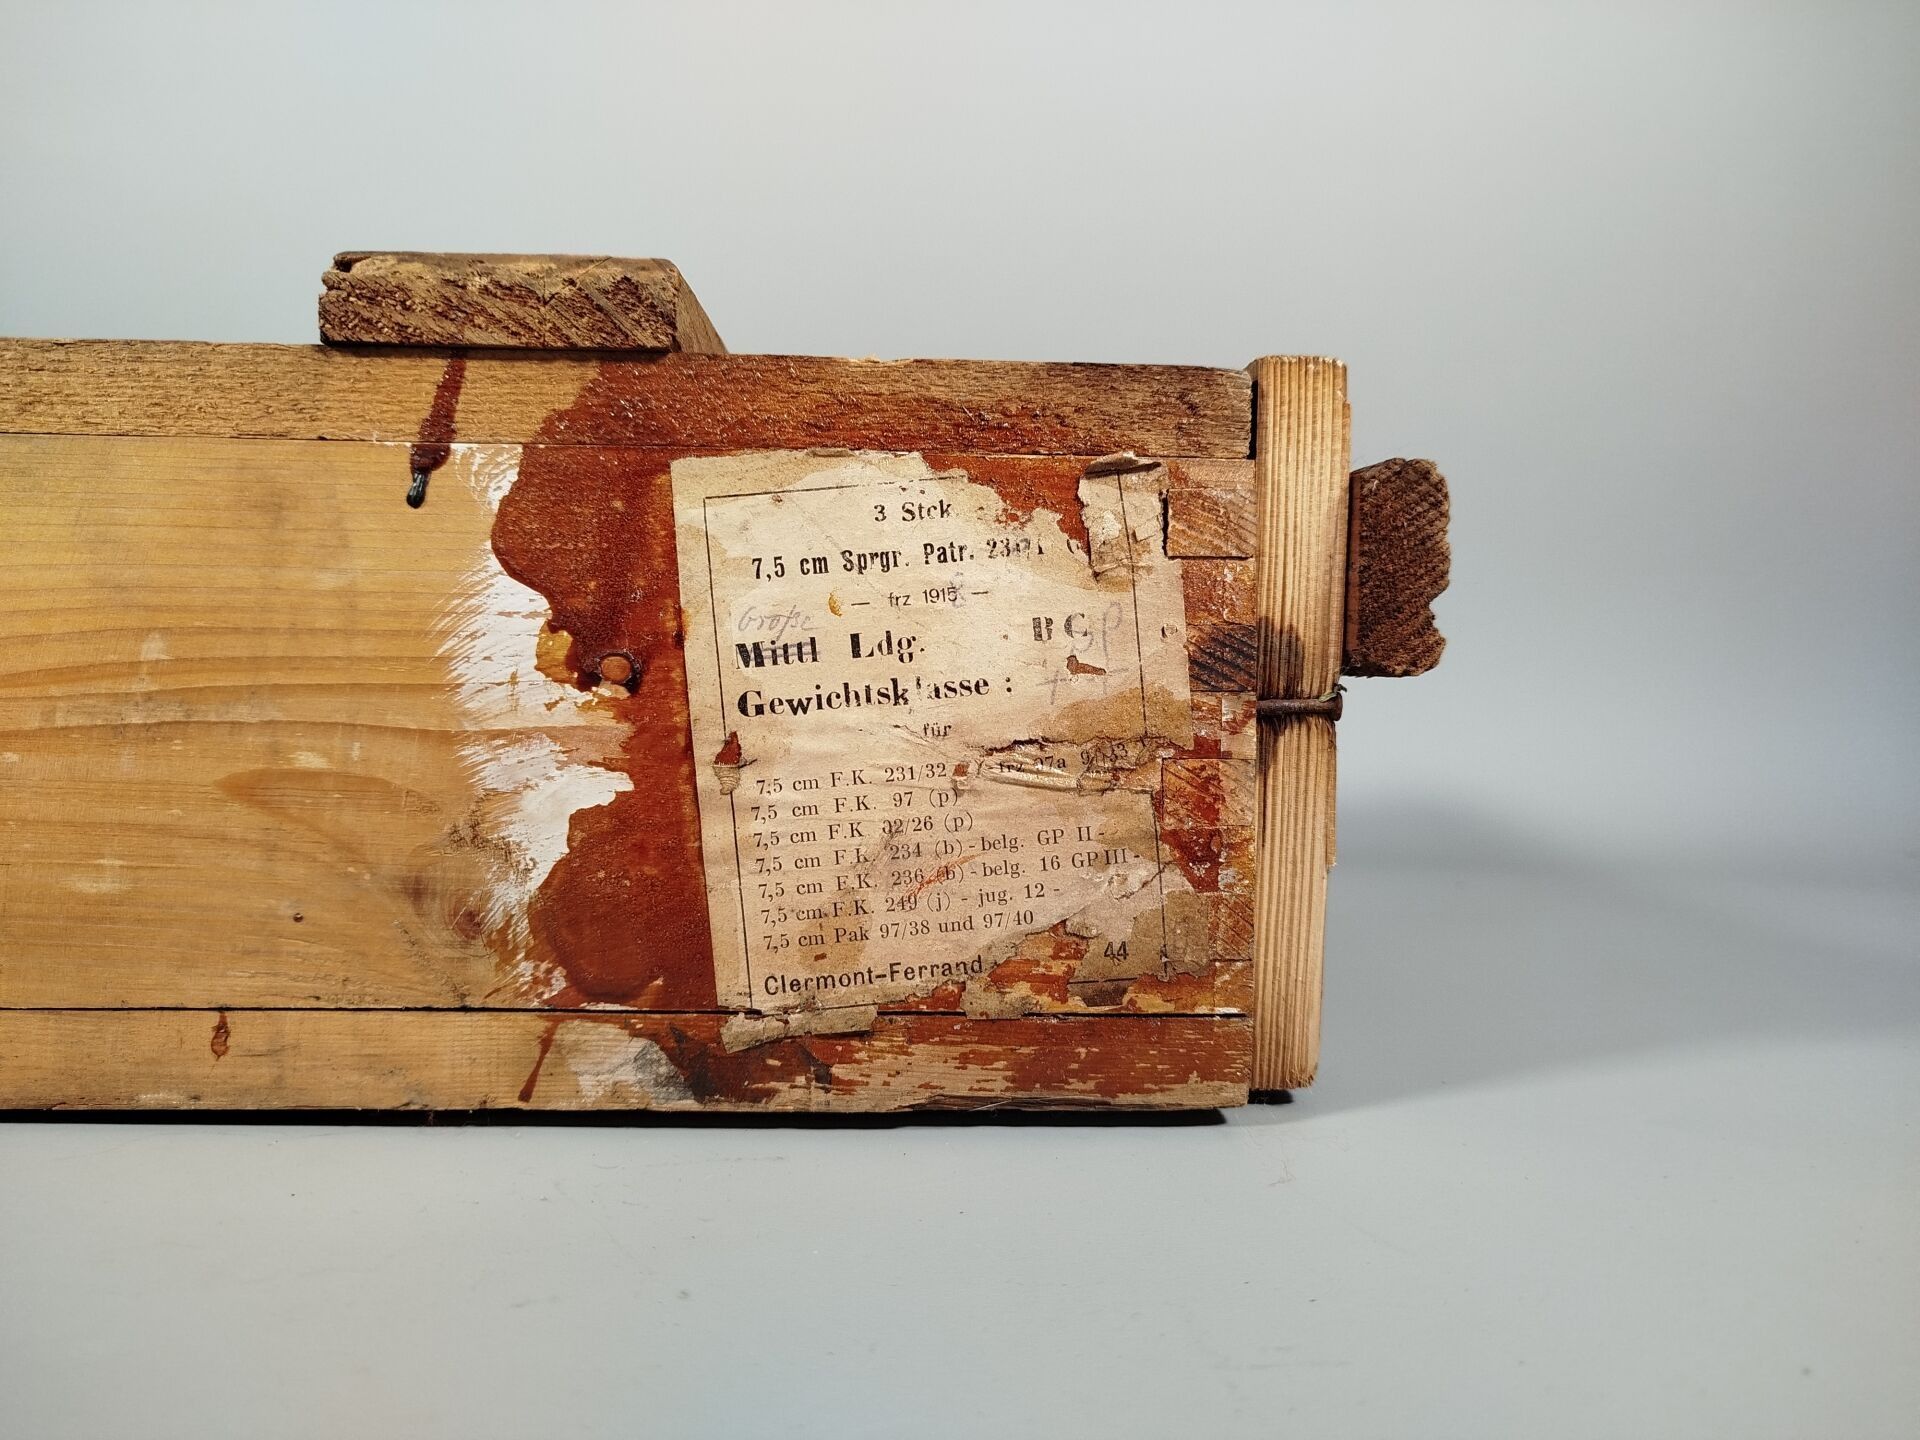 3 Stck
7,5 cm Sprgr. Patr.
— frz 1915 —
Große
Mittl Ldg. B G SP
Gewichtsklasse :
für
7,5 cm F.K. 231/32 frz 97a
7,5 cm F.K. 97 (p)
7,5 cm F.K. 02/26 (p)
7,5 cm F.K. 234 (b) - belg. GP II -
7,5 cm F.K. 236 (b) - belg. 16 GP III -
7,5 cm F.K. 249 (j) - jug. 12 -
7,5 cm Pak 97/38 und 97/40
Clermont-Ferrand 44